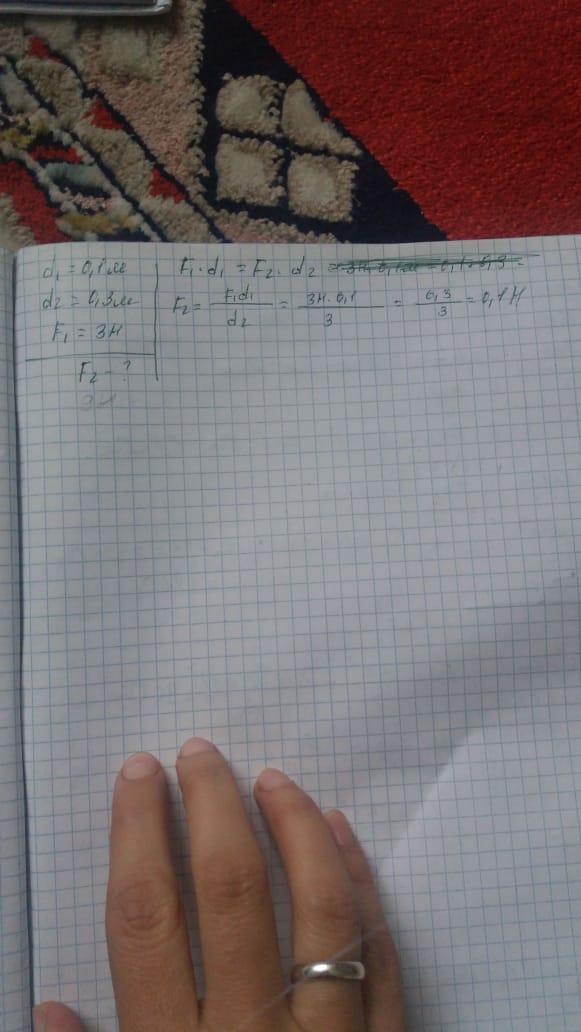 d₁ = 0,1м
d₂ = 0,3м
F₁ = 3Н
F₂ - ?
F₁ · d₁ = F₂ · d₂
F₂ = F₁d₁ / d₂ = 3Н · 0,1 / 3 = 0,3 / 3 = 0,1 Н